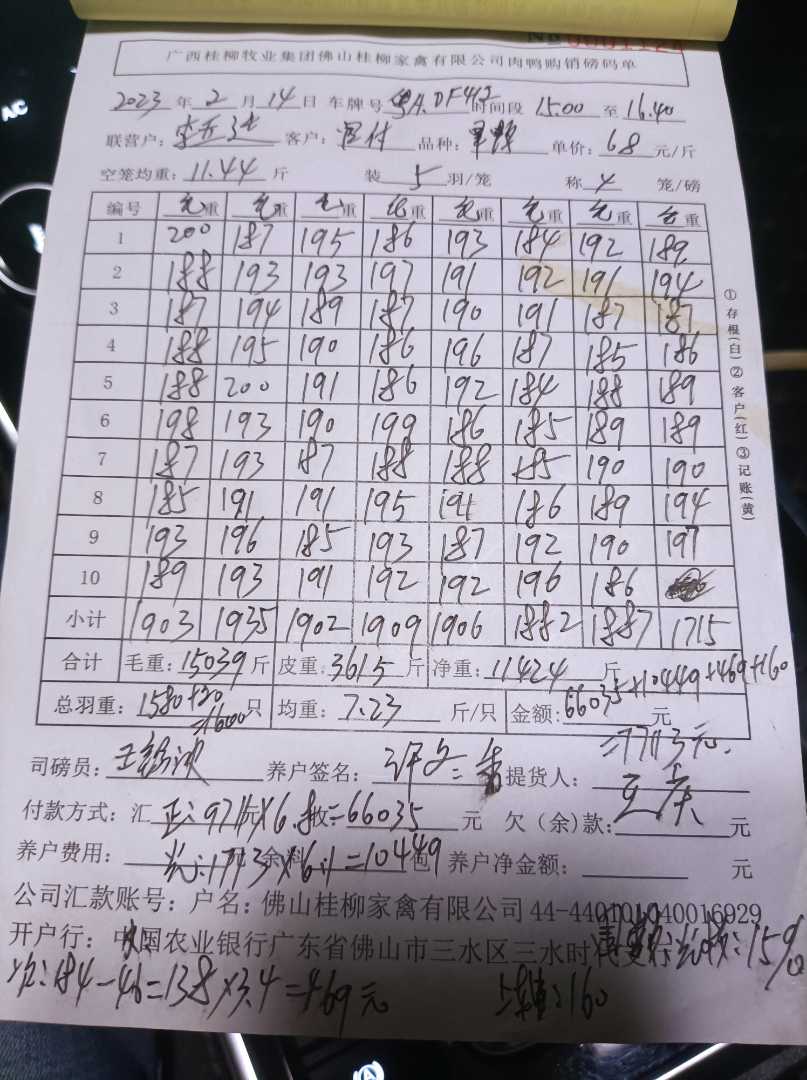 No 0001124
广西桂柳牧业集团佛山桂柳家禽有限公司肉鸭购销磅码单
2023 年 2 月 14 日 车牌号 粤A.DF462 时间段 15.00 至 16.40
联营户: 客户: 品种: 单价: 6.8 元/斤
空笼均重: 11.44 斤 装 5 羽/笼 称 4 笼/磅
编号 毛重 毛重 毛重 毛重 毛重 毛重 毛重 毛重
1 200 187 195 186 193 184 192 189
2 188 193 193 197 191 192 191 194
3 187 194 189 187 190 191 187 187
4 188 195 190 186 196 187 185 186
5 188 200 191 186 192 184 188 189
6 198 193 190 199 186 185 189 189
7 187 193 187 188 188 185 190 190
8 185 191 191 195 191 186 189 194
9 193 196 185 193 187 192 190 197
10 189 193 191 192 192 196 186
小计 1903 1935 1902 1909 1906 1882 1887 1715
合计 毛重: 15039 斤 皮重: 3615 斤 净重: 11424 斤
总羽重: 1580+20=1600 只 均重: 7.23 斤/只 金额: 66035+10449+469+160 元
=77113元.
司磅员: 养户签名: 许文 提货人:
付款方式: 汇 正: 9711 元 ×6.8 收: =66035 元 欠(余)款: 元
养户费用: : 1713 余料 ×6.1=10449 包 养户净金额: 元
公司汇款账号: 户名: 佛山桂柳家禽有限公司 44-440101040016929
开户行: 中国农业银行广东省佛山市三水区三水时代支行 : 15%
次: 184-46=138×3.4=469元 : 160
①存根(白)②客户(红)③记账(黄)